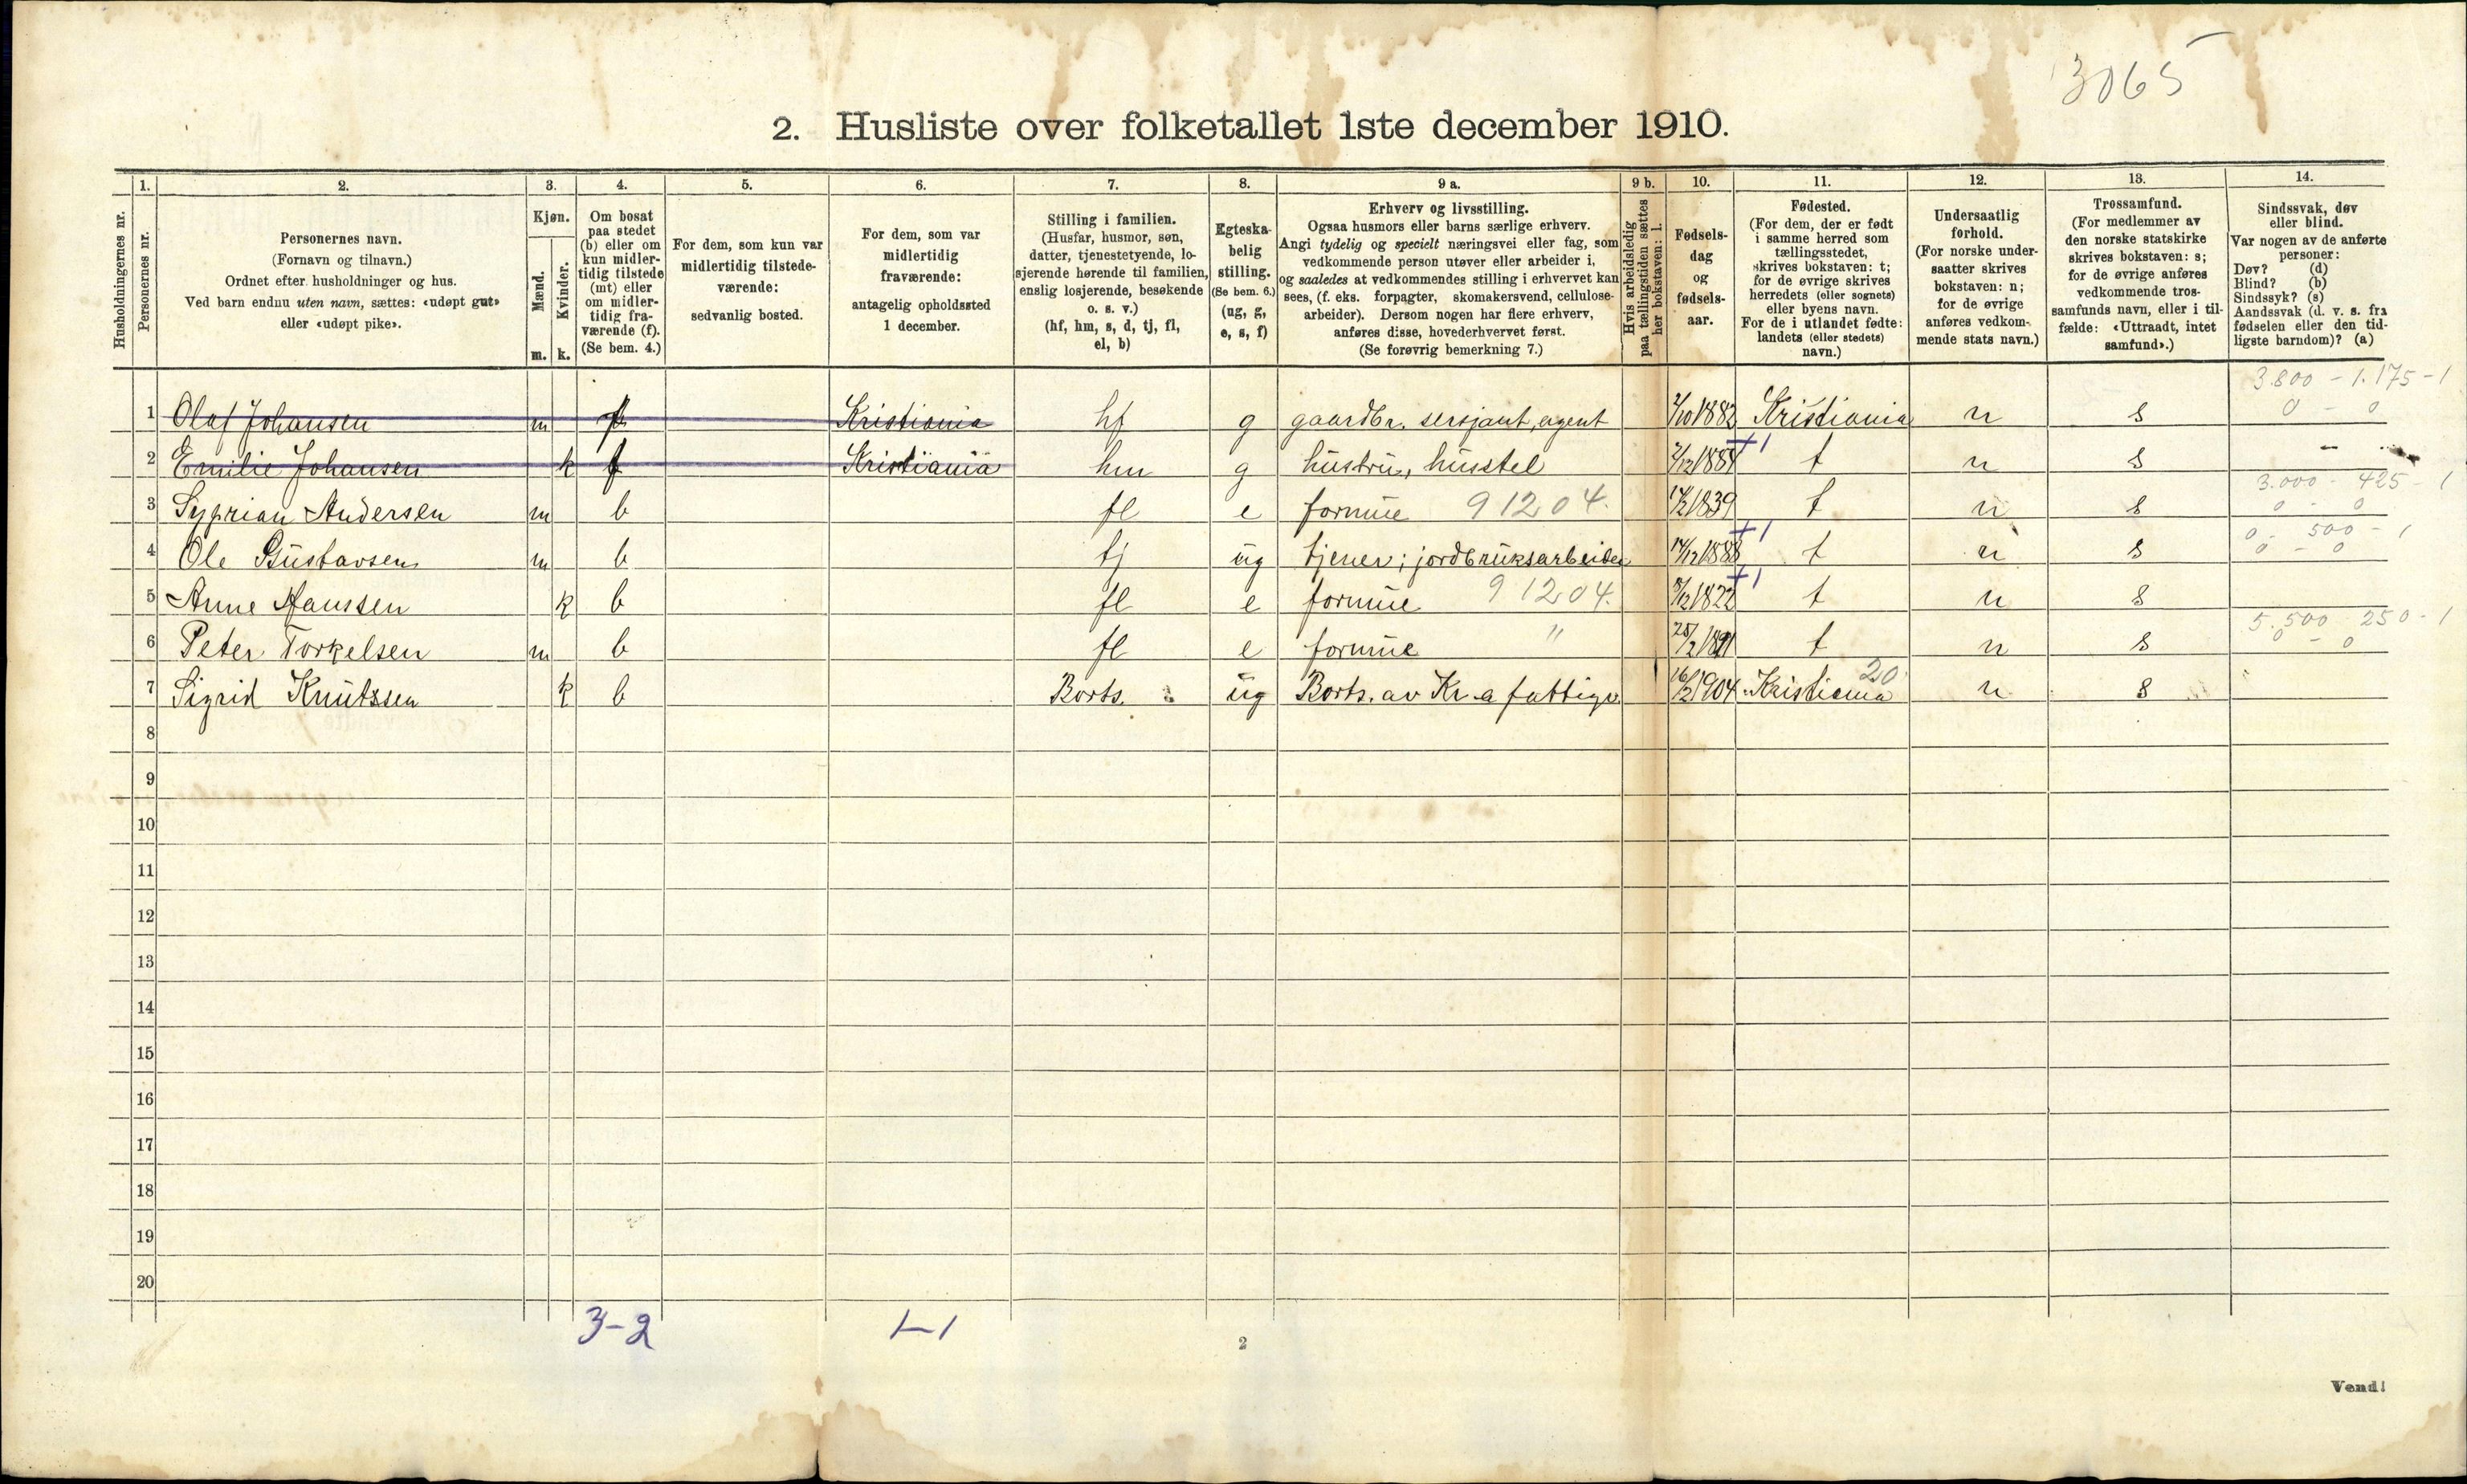 3065
2. Husliste over folketallet 1ste december 1910.
Husholdningernes nr.
1. Personernes nr.
2. Personernes navn.
(Fornavn og tilnavn.)
Ordnet efter husholdninger og hus.
Ved barn endnu uten navn, sættes: «udøpt gut»
eller «udøpt pike».
3. Kjøn.
Mænd. m.
Kvinder. k.
4. Om bosat
paa stedet
(b) eller om
kun midler-
tidig tilstede
(mt) eller
om midler-
tidig fra-
værende (f).
(Se bem. 4.)
5. For dem, som kun var
midlertidig tilstede-
værende:
sedvanlig bosted.
6. For dem, som var
midlertidig
fraværende:
antagelig opholdssted
1 december.
7. Stilling i familien.
(Husfar, husmor, søn,
datter, tjenestetyende, lo-
sjerende hørende til familien,
enslig losjerende, besøkende
o. s. v.)
(hf, hm, s, d, tj, fl,
el, b)
8. Egteska-
belig
stilling.
(Se bem. 6.)
(ug, g,
e, s, f)
9 a. Erhverv og livsstilling.
Ogsaa husmors eller barns særlige erhverv.
Angi tydelig og specielt næringsvei eller fag, som
vedkommende person utøver eller arbeider i,
og saaledes at vedkommendes stilling i erhvervet kan
sees, (f. eks. forpagter, skomakersvend, cellulose-
arbeider). Dersom nogen har flere erhverv,
anføres disse, hovederhvervet først.
(Se forøvrig bemerkning 7.)
9 b. Hvis arbeidsledig
paa tællingstiden sættes
her bokstaven: l.
10. Fødsels-
dag
og
fødsels-
aar.
11. Fødested.
(For dem, der er født
i samme herred som
tællingsstedet,
skrives bokstaven: t;
for de øvrige skrives
herredets (eller sognets)
eller byens navn.
For de i utlandet fødte:
landets (eller stedets)
navn.)
12. Undersaatlig
forhold.
(For norske under-
saatter skrives
bokstaven: n;
for de øvrige
anføres vedkom-
mende stats navn.)
13. Trossamfund.
(For medlemmer av
den norske statskirke
skrives bokstaven: s;
for de øvrige anføres
vedkommende tros-
samfunds navn, eller i til-
fælde: «Uttraadt, intet
samfund».)
14. Sindssvak, døv
eller blind.
Var nogen av de anførte
personer:
Døv? (d)
Blind? (b)
Sindssyk? (s)
Aandssvak (d. v. s. fra
fødselen eller den tid-
ligste barndom)? (a)
3.800 - 1.175 - 1
1 Olaf Johansen m f Kristiania hf g gaardbr. sersjant, agent 2/10 1882 Kristiania n s 0 - 0
2 Emilie Johansen k f Kristiania hm g hustru, husstel t n s -
3.000 - 425 - 1
3 Syprian Andersen m b fl e formue 91204. 1839 t n s 0 - 0
0 - 500 - 1
4 Ole Gustavsen m b tj ug tjener; jordbruksarbeider 14/12 1888 t n s 0 - 0
5 Anne Hanssen k b fl e formue 91204. 1822 t n s
5.500 250 - 1
6 Peter Torkelsen m b fl e formue " t n s 0 - 0
7 Sigrid Knutssen k b Borts. ug Borts. av Kr-a fattigv. 16/2 1904 Kristiania 20 n s
8
9
10
11
12
13
14
15
16
17
18
19
20
3-2
1-1
2
Vend!